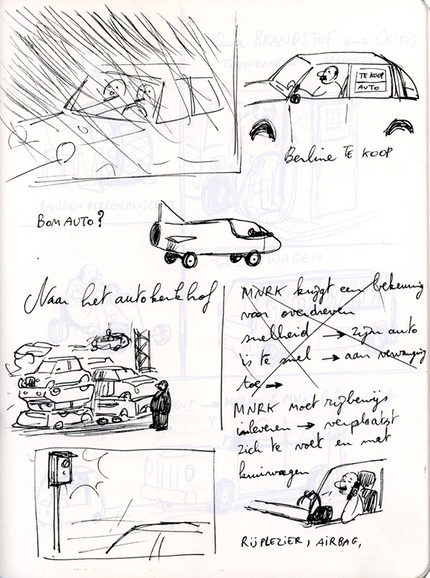 TE KOOP
AUTO
Berline TE KOOP
BOM AUTO?
Naar het autokerkhof
MNRK krijgt een bekeuring
voor overdreven
snelheid → zijn auto
is te snel → aan vervanging
toe →
MNRK moet rijbewijs
inleveren → verplaatst
zich te voet en met
kruiwagen
RIJPLEZIER, AIRBAG,